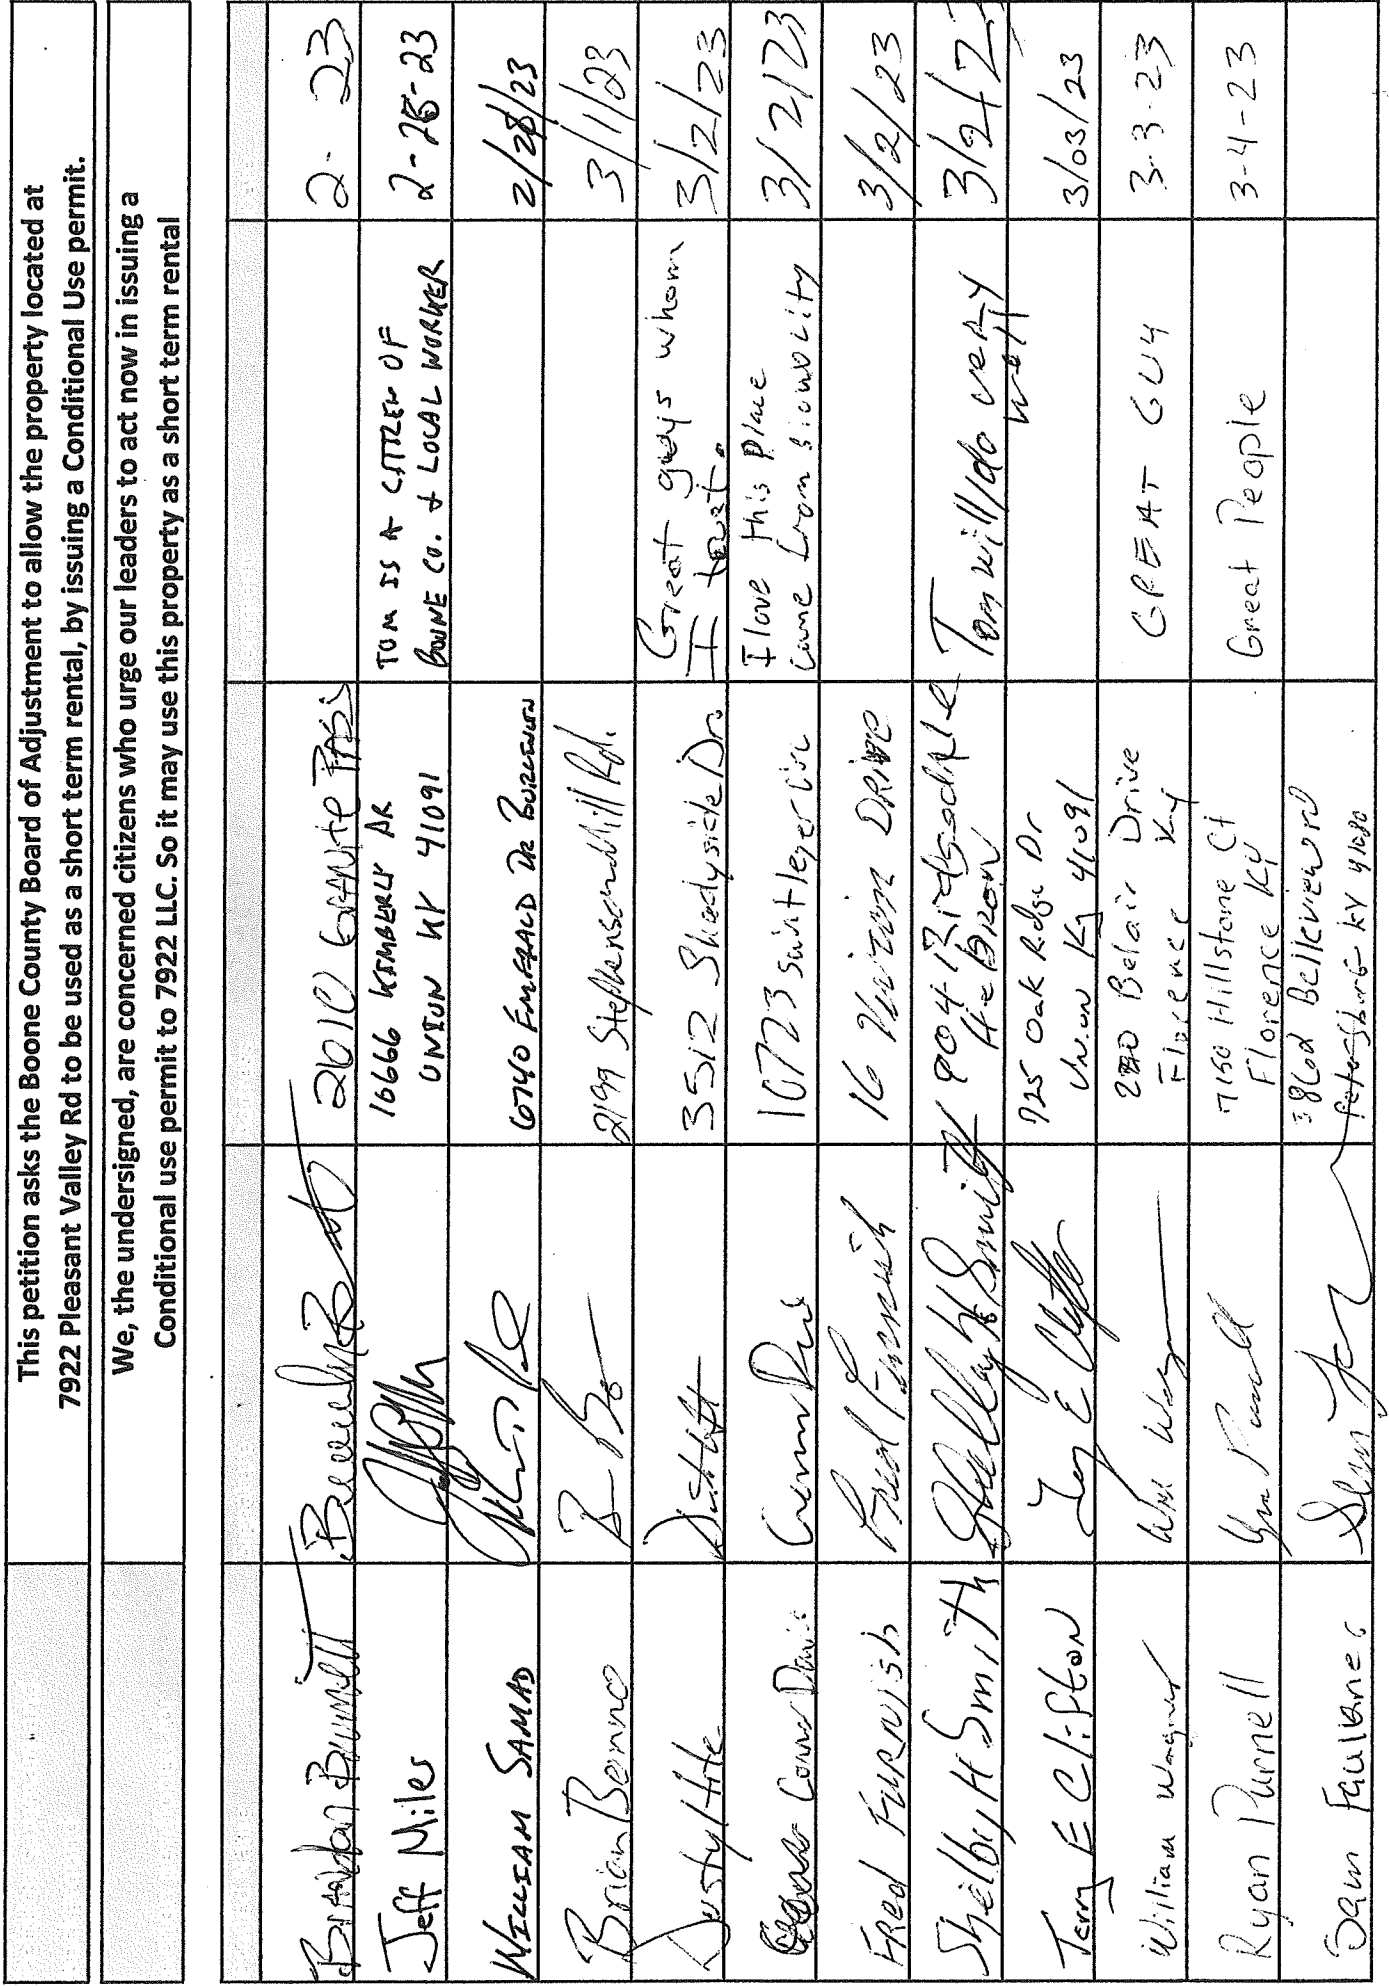 This petition asks the Boone County Board of Adjustment to allow the property located at
7922 Pleasant Valley Rd to be used as a short term rental, by issuing a Conditional Use permit.
We, the undersigned, are concerned citizens who urge our leaders to act now in issuing a
Conditional use permit to 7922 LLC. So it may use this property as a short term rental
Brandon Burnett 2610 2- 23
Jeff Miles 10666 KIMBERLY DR TOM IS A CITIZEN OF 2-28-23
UNION KY 41091 BOONE CO. & LOCAL WORKER
WILLIAM SAMAD 6740 EMERALD DR BURLINGTON 2/28/23
Brian Benno 2199 Stephenson Mill Rd. 3/1/23
Dusty Hite 3512 Shadyside Dr. Great guys whom 3/2/23
I trust.
Connor Davis 10773 Cir I love this place 3/2/23
came from
Fred FURNISH Fred Furnish 16 DRIVE 3/2/23
Shelby H Smith Shelby H Smith Ridgedale Tom will do very 3/2/2
HeBRON well
Terry E Clifton Terry E Clifton 725 Oak Ridge Dr 3/03/23
Union Ky 41091
William Wagner Belair Drive GREAT GUY 3-3-23
Florence Ky
Ryan Purnell 7150 Hillstone Ct Great People 3-4-23
Florence Ky
Sam Faulkner Belleview rd
Petersburg KY 41080